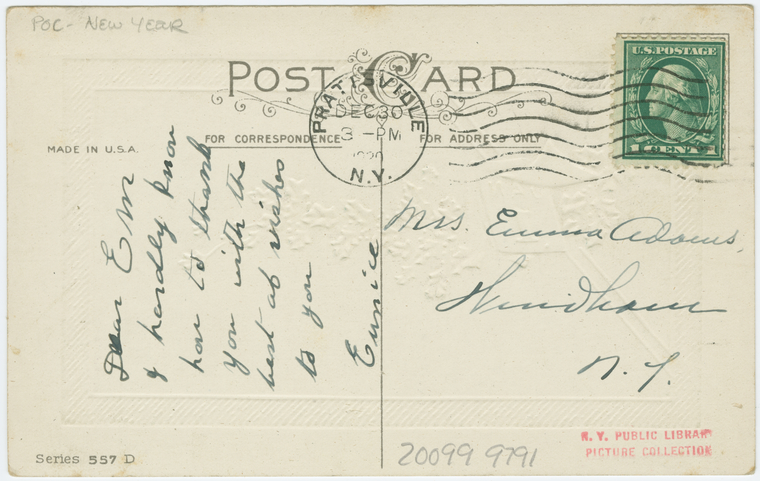 POC - NEW YEAR
U.S. POSTAGE
1 CENT 1
POST CARD
PRATTSVILLE
DEC 30
3 - PM
1920
N.Y.
FOR CORRESPONDENCE
FOR ADDRESS ONLY
MADE IN U.S.A.
Dear Em
I hardly know
how to thank
you with the
best of wishes
to you
Eunice
Mrs. Emma Adams,
Windham
N. Y.
N. Y. PUBLIC LIBRARY
PICTURE COLLECTION
Series 557 D
20099 9791